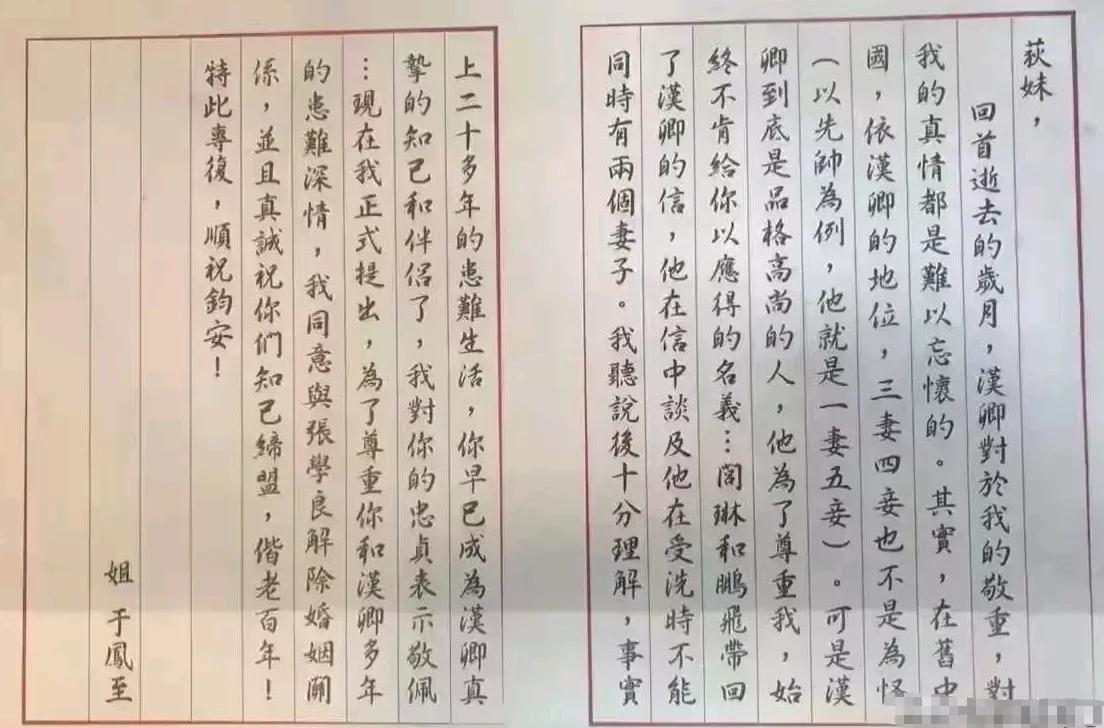 荻妹，
回首逝去的歲月，漢卿對於我的敬重，對
我的真情都是難以忘懷的。其實，在舊中
國，依漢卿的地位，三妻四妾也不是為怪
（以先帥為例，他就是一妻五妾）。可是漢
卿到底是品格高尚的人，他為了尊重我，始
終不肯給你以應得的名義…閭琳和鵬飛帶回
了漢卿的信，他在信中談及他在受洗時不能
同時有兩個妻子。我聽說後十分理解，事實
上二十多年的患難生活，你早已成為漢卿真
摯的知己和伴侶了，我對你的忠貞表示敬佩
…現在我正式提出，為了尊重你和漢卿多年
的患難深情，我同意與張學良解除婚姻關
係，並且真誠祝你們知己締盟，偕老百年！
特此專復，順祝鈞安！
姐 于鳳至